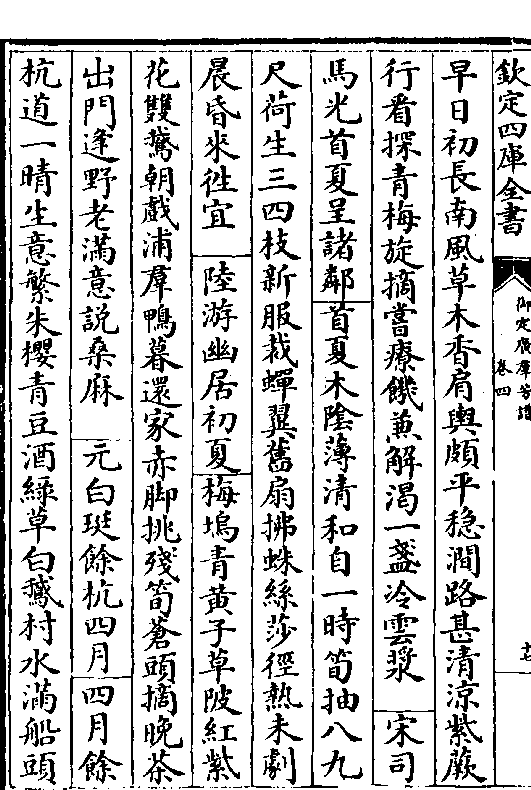 欽定四庫全書
御定廣羣芳譜
卷四
早日初長南風草木香肩輿頗平穏澗路甚清涼紫蕨
行看採青梅旋摘嘗療饑兼解渴一盞冷雲漿 宋司
馬光首夏呈諸鄰首夏木陰薄清和自一時筍抽八九
尺荷生三四枝新服裁蟬翼舊扇拂蛛絲莎徑熱未劇
晨昏來徃宜 陸游幽居初夏梅塢青黃子草陂紅紫
花雙鵞朝戲浦羣鴨暮還家赤脚挑殘筍蒼頭摘晩茶
出門逢野老滿意説桑麻 元白珽餘杭四月四月餘
杭道一晴生意繁朱櫻青豆酒綠草白鵞村水滿船頭